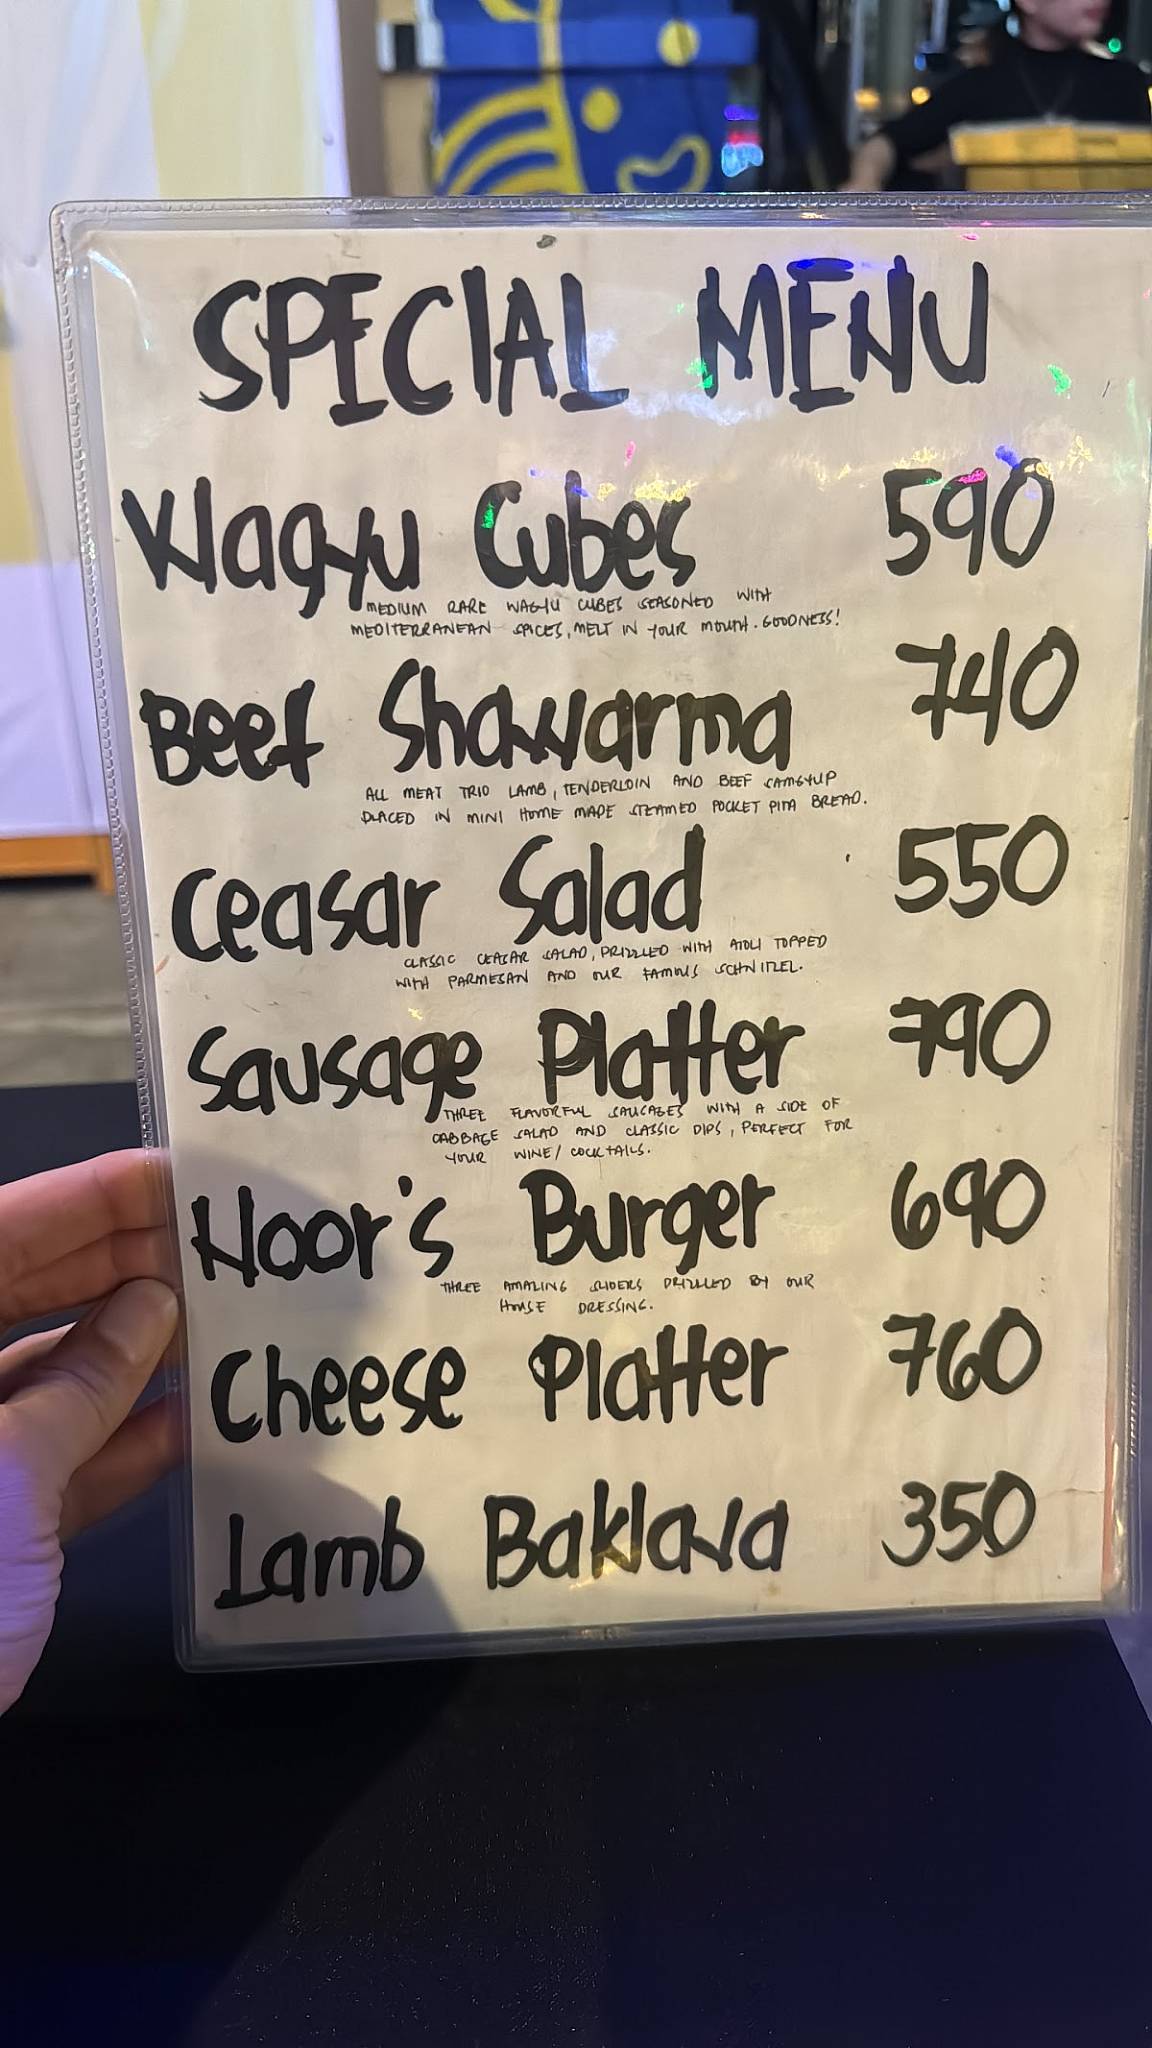 SPECIAL MENU
Wagyu Cubes 590
MEDIUM RARE WAGYU CUBES SEASONED WITH
MEDITERRANEAN SPICES, MELT IN YOUR MOUTH. GOODNESS!
Beef Shawarma 740
ALL MEAT TRIO LAMB, TENDERLOIN AND BEEF SAMGYUP
PLACED IN MINI HOME MADE STEAMED POCKET PITA BREAD.
Ceasar Salad 550
CLASSIC CEASAR SALAD, DRIZZLED WITH AIOLI TOPPED
WITH PARMESAN AND OUR FAMOUS SCHNITZEL.
Sausage Platter 790
THREE FLAVORFUL SAUSAGES WITH A SIDE OF
CABBAGE SALAD AND CLASSIC DIPS, PERFECT FOR
YOUR WINE/ COCKTAILS.
Noor's Burger 690
THREE AMAZING SLIDERS DRIZZLED BY OUR
HOUSE DRESSING.
Cheese Platter 760
Lamb Baklava 350